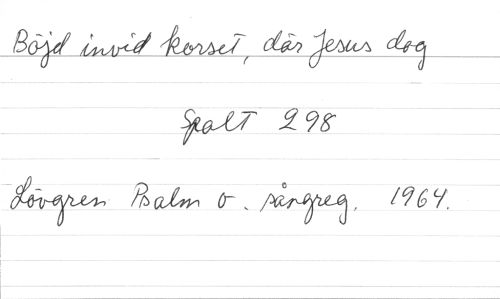 Böjd invid korset, där Jesus dog
Spalt 298
Lövgren Psalm o. sångreg. 1964.